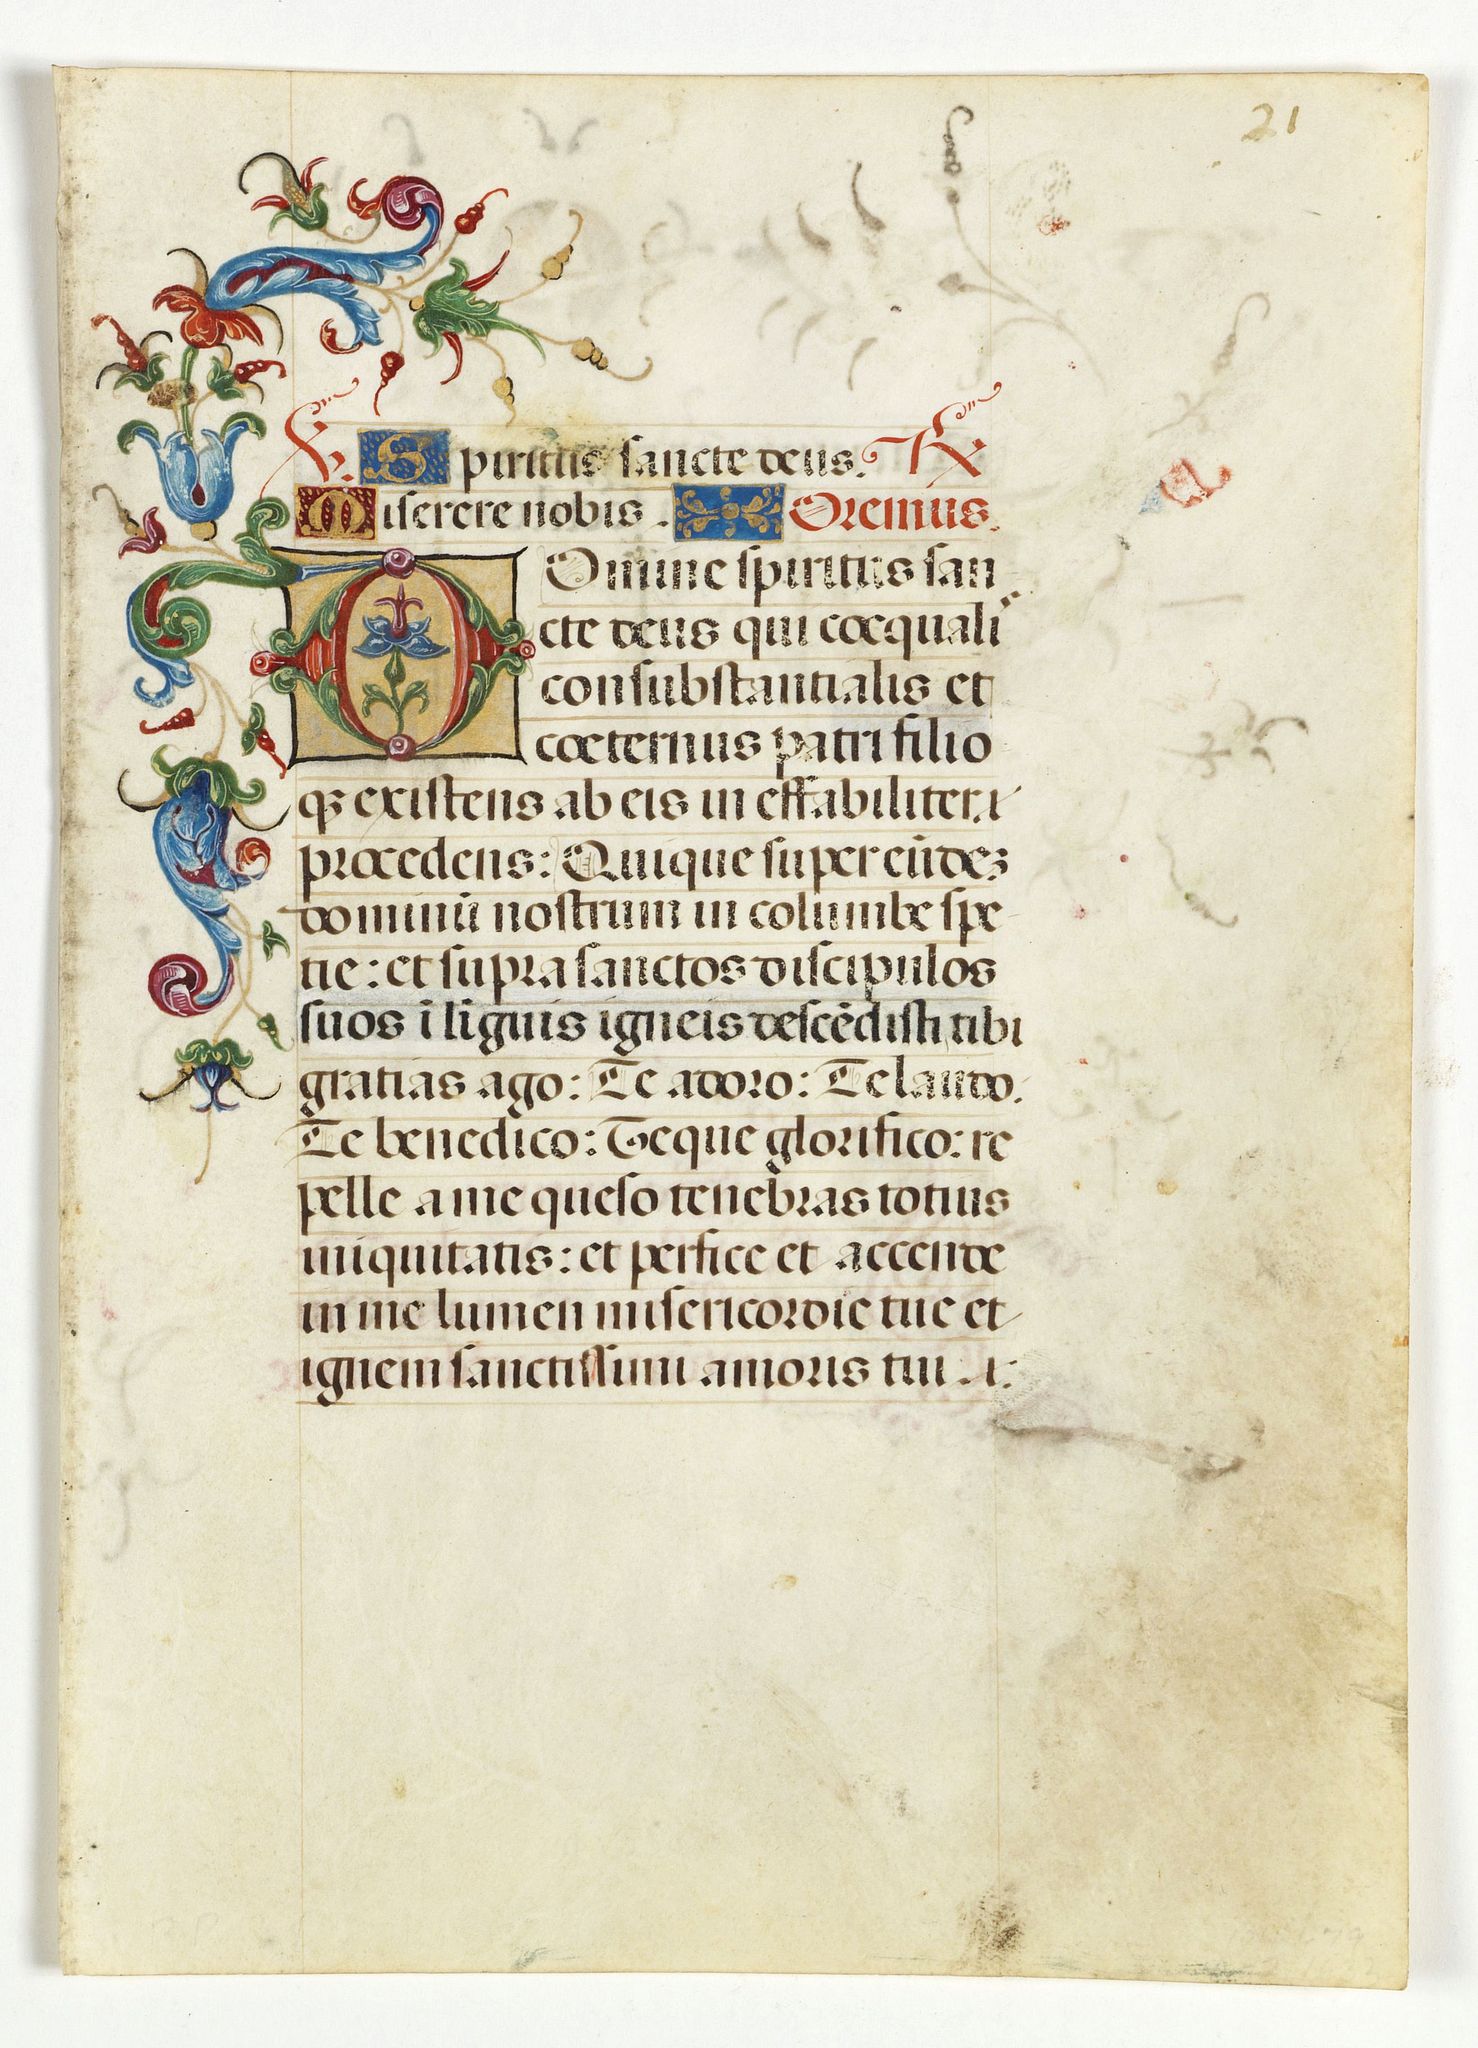 21
℣. Spiritus sancte deus. ℟
Miserere nobis. Oremus.
O Omine spiritus san
cte deus qui coequalis
consubstantialis et
coeternus patri filio
qȝ existens ab eis in effabiliter
procedens: Quique super eūdeȝ
dominū nostrum in columbe spe
tie: et supra sanctos discipulos
suos ī līguis igneis descēdisti tibi
gratias ago: Te adoro: Te laudo.
Te benedico: Teque glorifico: re
pelle a me queso tenebras totius
iniquitatis: et perfice et accende
in me lumen misericordie tue et
ignem sanctissimi amoris tui